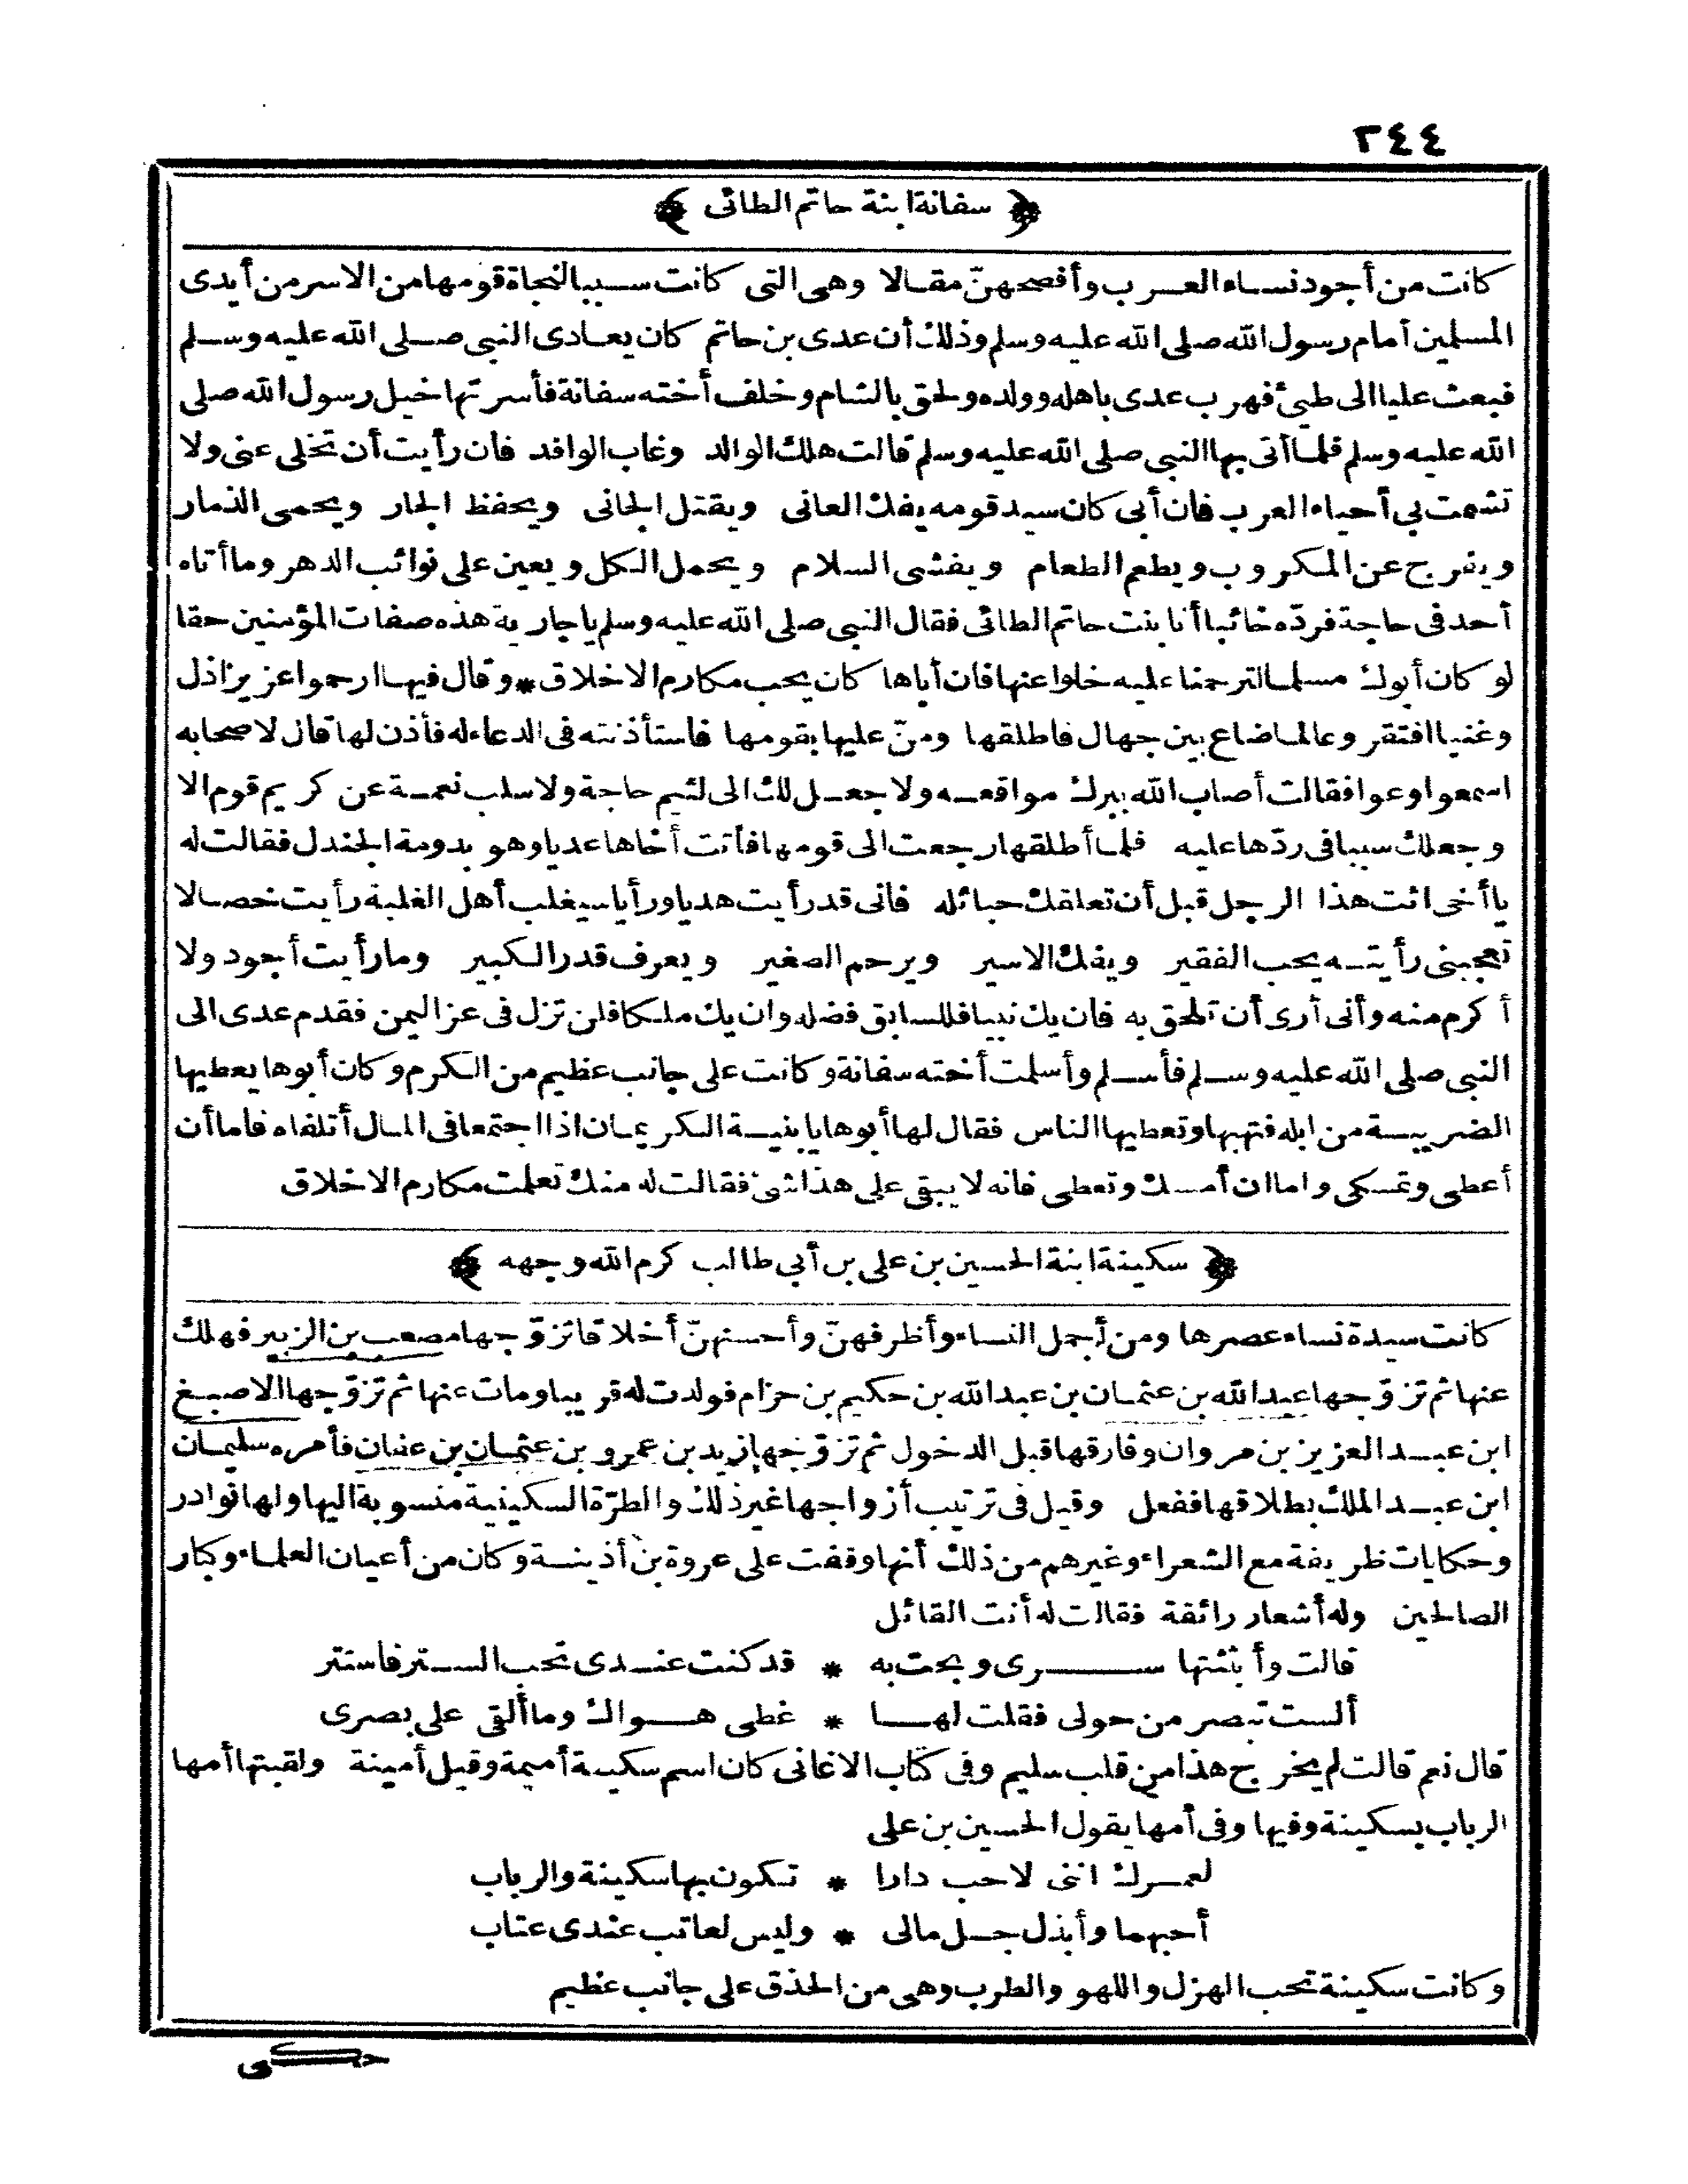 ٢٤٤
﴿ سفانة ابنة حاتم الطائى ﴾
كانت من أجود نساء العرب وأفصحهنّ مقالا وهى التى كانت سببا لنجاة قومها من الاسر من أيدى
المسلمين أمام رسول الله صلى الله عليه وسلم وذلك أن عدى بن حاتم كان يعادى النبى صلى الله عليه وسلم
فبعث عليا الى طيئ فهرب عدى باهله وولده ولحق بالشام وخلف أخته سفانة فأسرتها خيل رسول الله صلى
الله عليه وسلم فلما أتى بها النبى صلى الله عليه وسلم قالت هلك الوالد وغاب الوافد فان رأيت أن تخلى عنى ولا
تشمت بى أحياء العرب فان أبى كان سيد قومه يفك العانى ويقتل الجانى ويحفظ الجار ويحمى الذمار
ويفرج عن المكروب ويطعم الطعام ويفشى السلام ويحمل الكل ويعين على نوائب الدهر وما أتاه
أحد فى حاجة فردّه خائبا أنا بنت حاتم الطائى فقال النبى صلى الله عليه وسلم يا جارية هذه صفات المؤمنين حقا
لو كان أبوك مسلما لترحمنا عليه خلوا عنها فان أباها كان يحب مكارم الاخلاق * وقال فيها ارحموا عزيزا ذل
وغنيا افتقر وعالما ضاع بين جهال فاطلقها ومنّ عليها بقومها فاستأذنته فى الدعاء له فأذن لها قال لاصحابه
اسمعوا وعوا فقالت أصاب الله ببرك مواقعه ولا جعل لك الى لئيم حاجة ولا سلب نعمة عن كريم قوم الا
وجعلك سببا فى ردّها عليه فلما أطلقها رجعت الى قومها فأتت أخاها عديا وهو بدومة الجندل فقالت له
يا أخى ائت هذا الرجل قبل أن تعلقك حبائله فانى قد رأيت هديا ورأيا سيغلب أهل الغلبة رأيت خصالا
تعجبنى رأيته يحب الفقير ويفك الاسير ويرحم الصغير ويعرف قدر الكبير وما رأيت أجود ولا
أكرم منه وأنى أرى أن تلحق به فان يك نبيا فللسابق فضله وان يك ملكا فلن تزل فى عز اليمن فقدم عدى الى
النبى صلى الله عليه وسلم فأسلم وأسلمت أخته سفانة وكانت على جانب عظيم من الكرم وكان أبوها يعطيها
الضريبة من ابله فتهبها وتعطيها الناس فقال لها أبوها يا بنية الكريمان اذا اجتمعا فى المال أتلفاه فاما أن
أعطى وتمسكى واما ان أمسك وتعطى فانه لا يبقى على هذا شئ فقالت له منك تعلمت مكارم الاخلاق
﴿ سكينة ابنة الحسين بن على بن أبى طالب كرم الله وجهه ﴾
كانت سيدة نساء عصرها ومن أجمل النساء وأظرفهنّ وأحسنهنّ أخلاقا تزوّجها مصعب بن الزبير فهلك
عنها ثم تزوّجها عبد الله بن عثمان بن عبد الله بن حكيم بن حزام فولدت له قريبا ومات عنها ثم تزوّجها الاصبغ
ابن عبد العزيز بن مروان وفارقها قبل الدخول ثم تزوّجها زيد بن عمرو بن عثمان بن عفان فأمره سليمان
ابن عبد الملك بطلاقها ففعل وقيل فى ترتيب أزواجها غير ذلك والطرّة السكينية منسوبة اليها ولها نوادر
وحكايات ظريفة مع الشعراء وغيرهم من ذلك أنها وقفت على عروة بن أذينة وكان من أعيان العلماء وكبار
الصالحين وله أشعار رائقة فقالت له أنت القائل
قالت وأبثثتها سرى وبحت به * قد كنت عندى تحب الستر فاستتر
ألست تبصر من حولى فقلت لها * غطى هواك وما ألقى على بصرى
قال نعم قالت لم يخرج هذا من قلب سليم وفى كتاب الاغانى كان اسم سكينة أميمة وقيل أمينة ولقبتها أمها
الرباب بسكينة وفيها وفى أمها يقول الحسين بن على
لعمرك اننى لاحب دارا * تكون بها سكينة والرباب
أحبهما وأبذل جل مالى * وليس لعاتب عندى عتاب
وكانت سكينة تحب الهزل واللهو والطرب وهى من الحذق على جانب عظيم
حكى